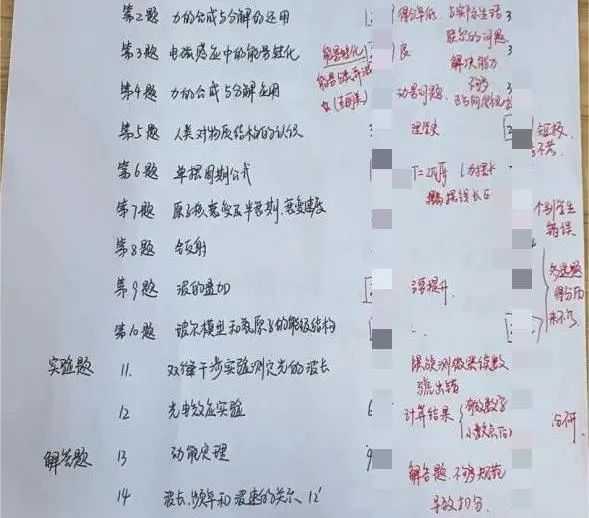 第2题 力的合成与分解的运用 得分率低、与实际生活 3
联系的问题
第3题 电磁感应中的能量转化 能量转化 良 3
解决能力
第4题 力的合成与分解应用 动量问题、 3
第5题 人类对物质结构的认识 3 理学史
第6题 单摆周期公式 T=2π L为摆长
摆线长
第7题 原子核衰变及半衰期、衰变速度 个别学生
错误
第8题 全反射
第9题 波的叠加 多选题
得分历
来不高
第10题 波尔模型和氢原子的能级结构
实验题 11. 双缝干涉实验测定光的波长 误读测微器读数
12 光电效应实验 6 计算结果 有效数字
小数点后
解答题 13 动能定理 9 解答题、不够规范
14 波长、频率和波速的关系、12' 导致扣分、